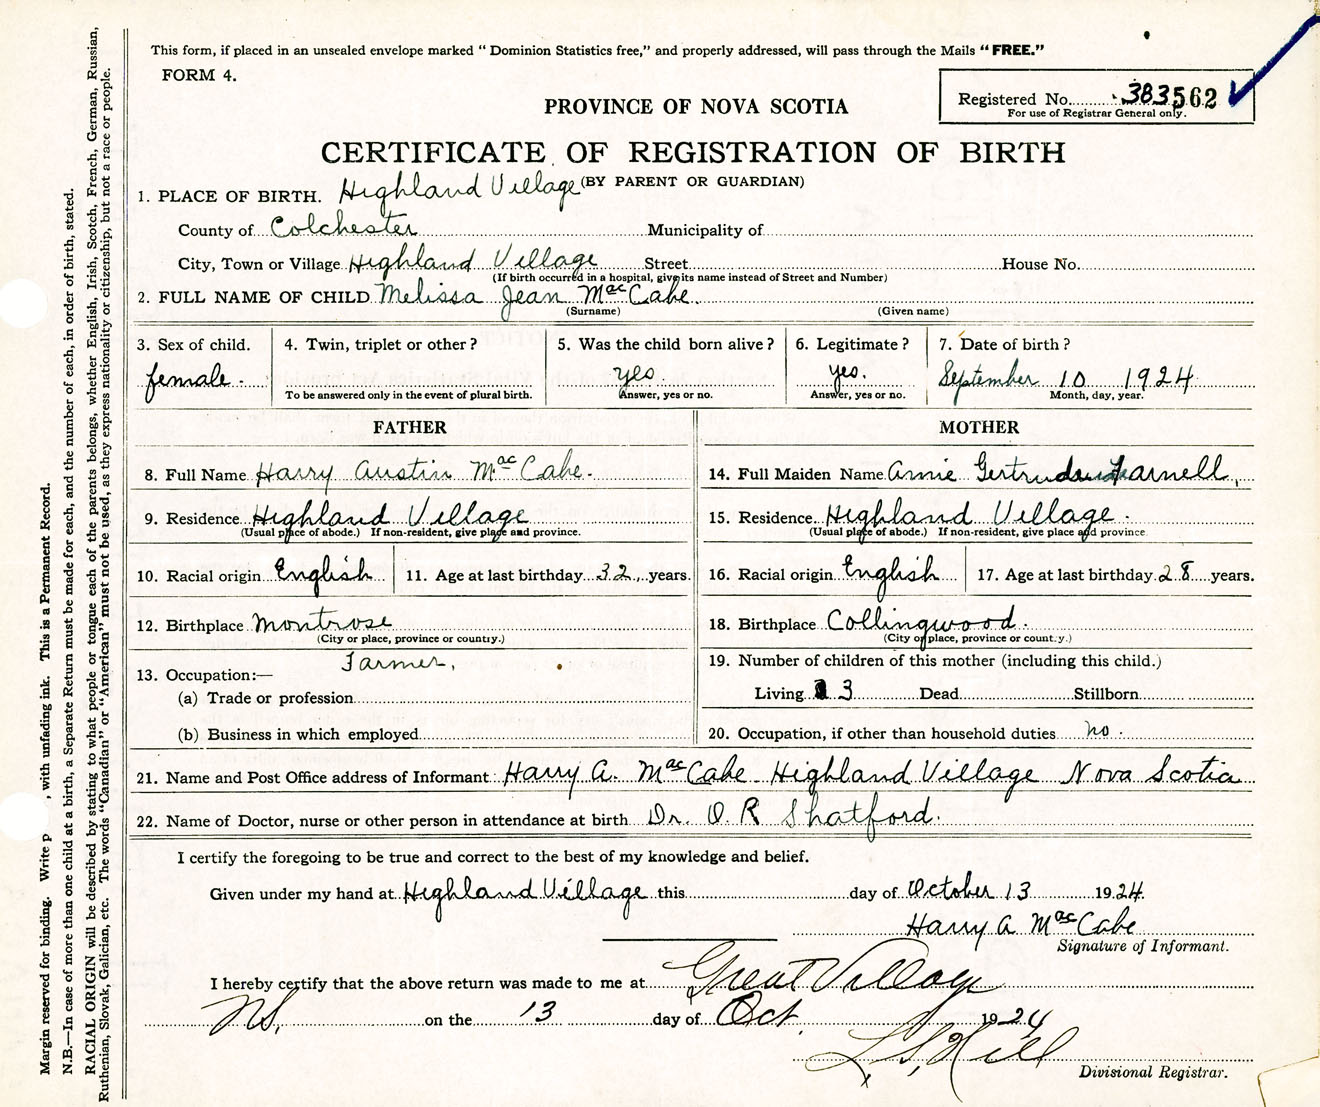 This form, if placed in an unsealed envelope marked “Dominion Statistics free,” and properly addressed, will pass through the Mails “FREE.”
FORM 4.
Registered No. 383562
For use of Registrar General only.
PROVINCE OF NOVA SCOTIA
CERTIFICATE OF REGISTRATION OF BIRTH
(BY PARENT OR GUARDIAN)
1. PLACE OF BIRTH. Highland Village
County of Colchester Municipality of
City, Town or Village Highland Village Street House No.
(If birth occurred in a hospital, give its name instead of Street and Number)
2. FULL NAME OF CHILD Melissa Jean MacCabe.
(Surname) (Given name)
3. Sex of child. 4. Twin, triplet or other? 5. Was the child born alive? 6. Legitimate? 7. Date of birth?
female. yes. yes. September 10 1924
To be answered only in the event of plural birth. Answer, yes or no. Answer, yes or no. Month, day, year.
FATHER MOTHER
8. Full Name Harry Austin MacCabe. 14. Full Maiden Name Annie Gertrude Farnell.
9. Residence Highland Village 15. Residence Highland Village.
(Usual place of abode.) If non-resident, give place and province. (Usual place of abode.) If non-resident, give place and province
10. Racial origin English 11. Age at last birthday 32 years. 16. Racial origin English 17. Age at last birthday 28 years.
12. Birthplace Montrose 18. Birthplace Collingwood.
(City or place, province or country.) (City or place, province or country.)
13. Occupation:— Farmer. 19. Number of children of this mother (including this child.)
(a) Trade or profession Living 3 Dead Stillborn
(b) Business in which employed 20. Occupation, if other than household duties no.
21. Name and Post Office address of Informant: Harry A. MacCabe Highland Village Nova Scotia
22. Name of Doctor, nurse or other person in attendance at birth Dr. O. R Shatford.
I certify the foregoing to be true and correct to the best of my knowledge and belief.
Given under my hand at Highland Village this day of October 13 1924.
Harry A MacCabe
Signature of Informant.
I hereby certify that the above return was made to me at Great Village
NS. on the 13 day of Oct. 1924
L S Hill
Divisional Registrar.
Margin reserved for binding. Write p , with unfading ink. This is a Permanent Record.
N.B.—In case of more than one child at a birth, a Separate Return must be made for each, and the number of each, in order of birth, stated.
RACIAL ORIGIN will be described by stating to what people or tongue each of the parents belongs, whether English, Irish, Scotch, French, German, Russian,
Ruthenian, Slovak, Galician, etc. The words “Canadian” or “American” must not be used, as they express nationality or citizenship, but not a race or people.